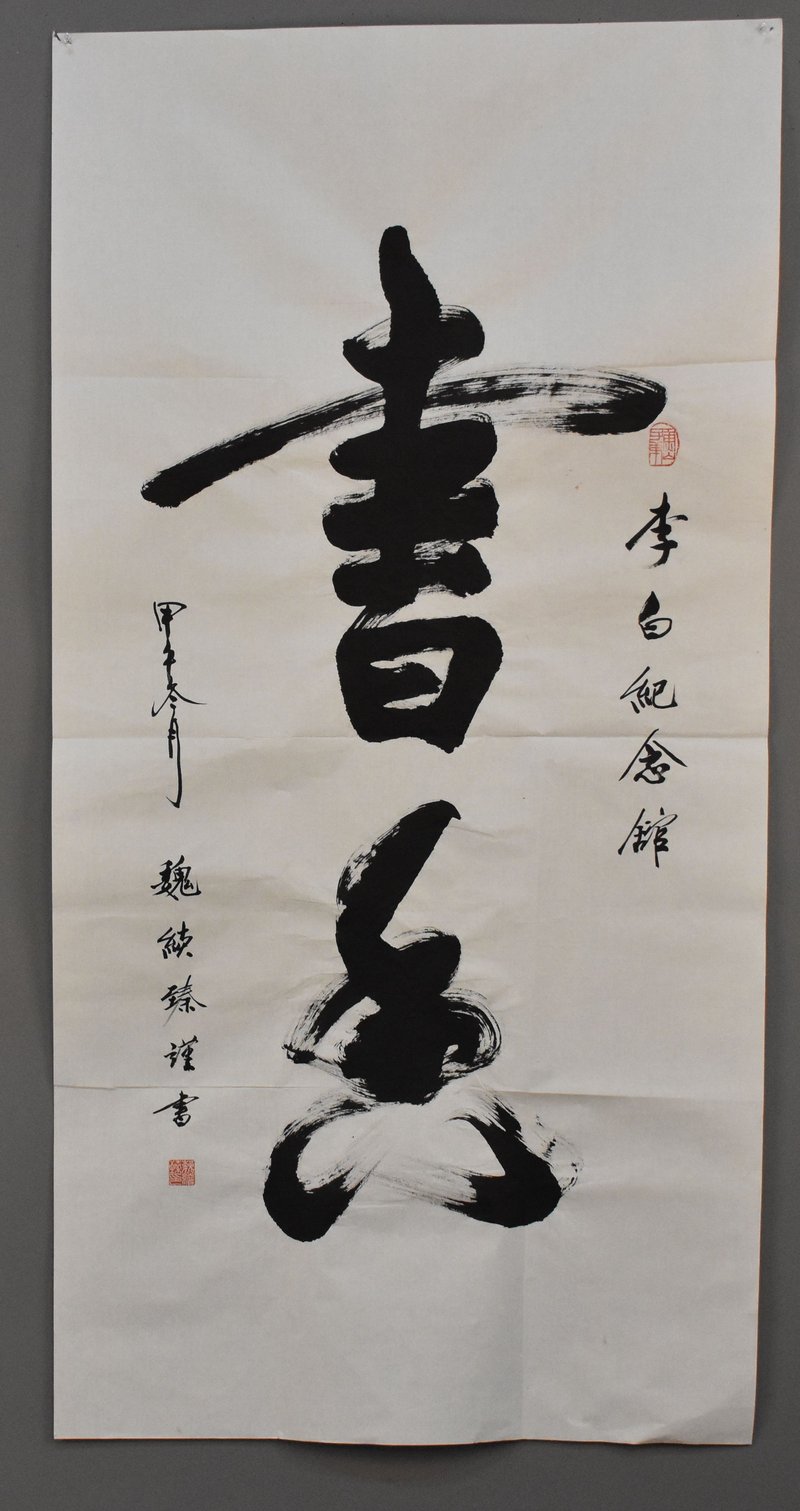 李白紀念館
書
甲午冬月 魏續臻謹書